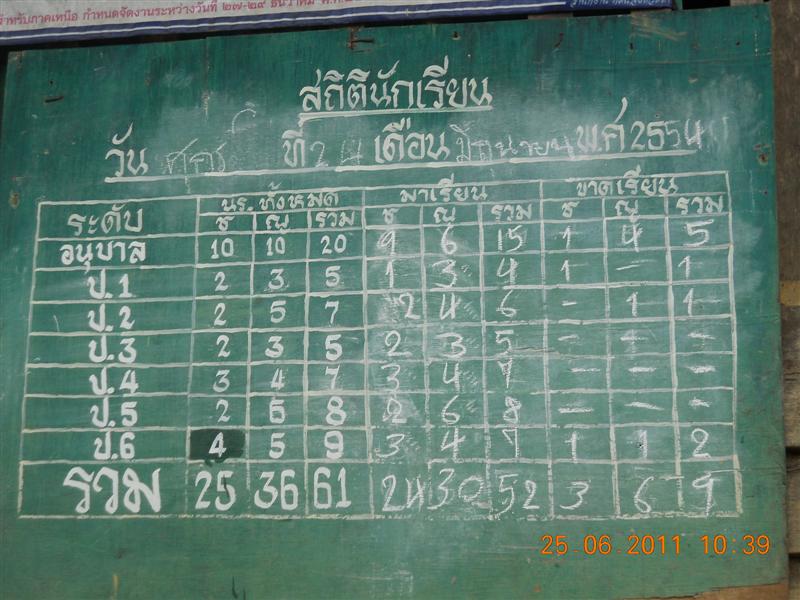 สำหรับภาคเหนือ กำหนดจัดงานระหว่างวันที่ ๒๗-๒๙ ธันวาคม พ.ศ.
สถิตินักเรียน
วัน ศุกร์ ที่ 24 เดือน มิถุนายน พ.ศ 2554
ระดับ นร. ทั้งหมด มาเรียน ขาดเรียน
ช ญ รวม ช ญ รวม ช ญ รวม
อนุบาล 10 10 20 9 6 15 1 4 5
ป.1 2 3 5 1 3 4 1 - 1
ป.2 2 5 7 2 4 6 - 1 1
ป.3 2 3 5 2 3 5 - - -
ป.4 3 4 7 3 4 7 - - -
ป.5 2 6 8 2 6 8 - - -
ป.6 4 5 9 3 4 7 1 1 2
รวม 25 36 61 24 30 52 3 6 9
25.06.2011 10:39